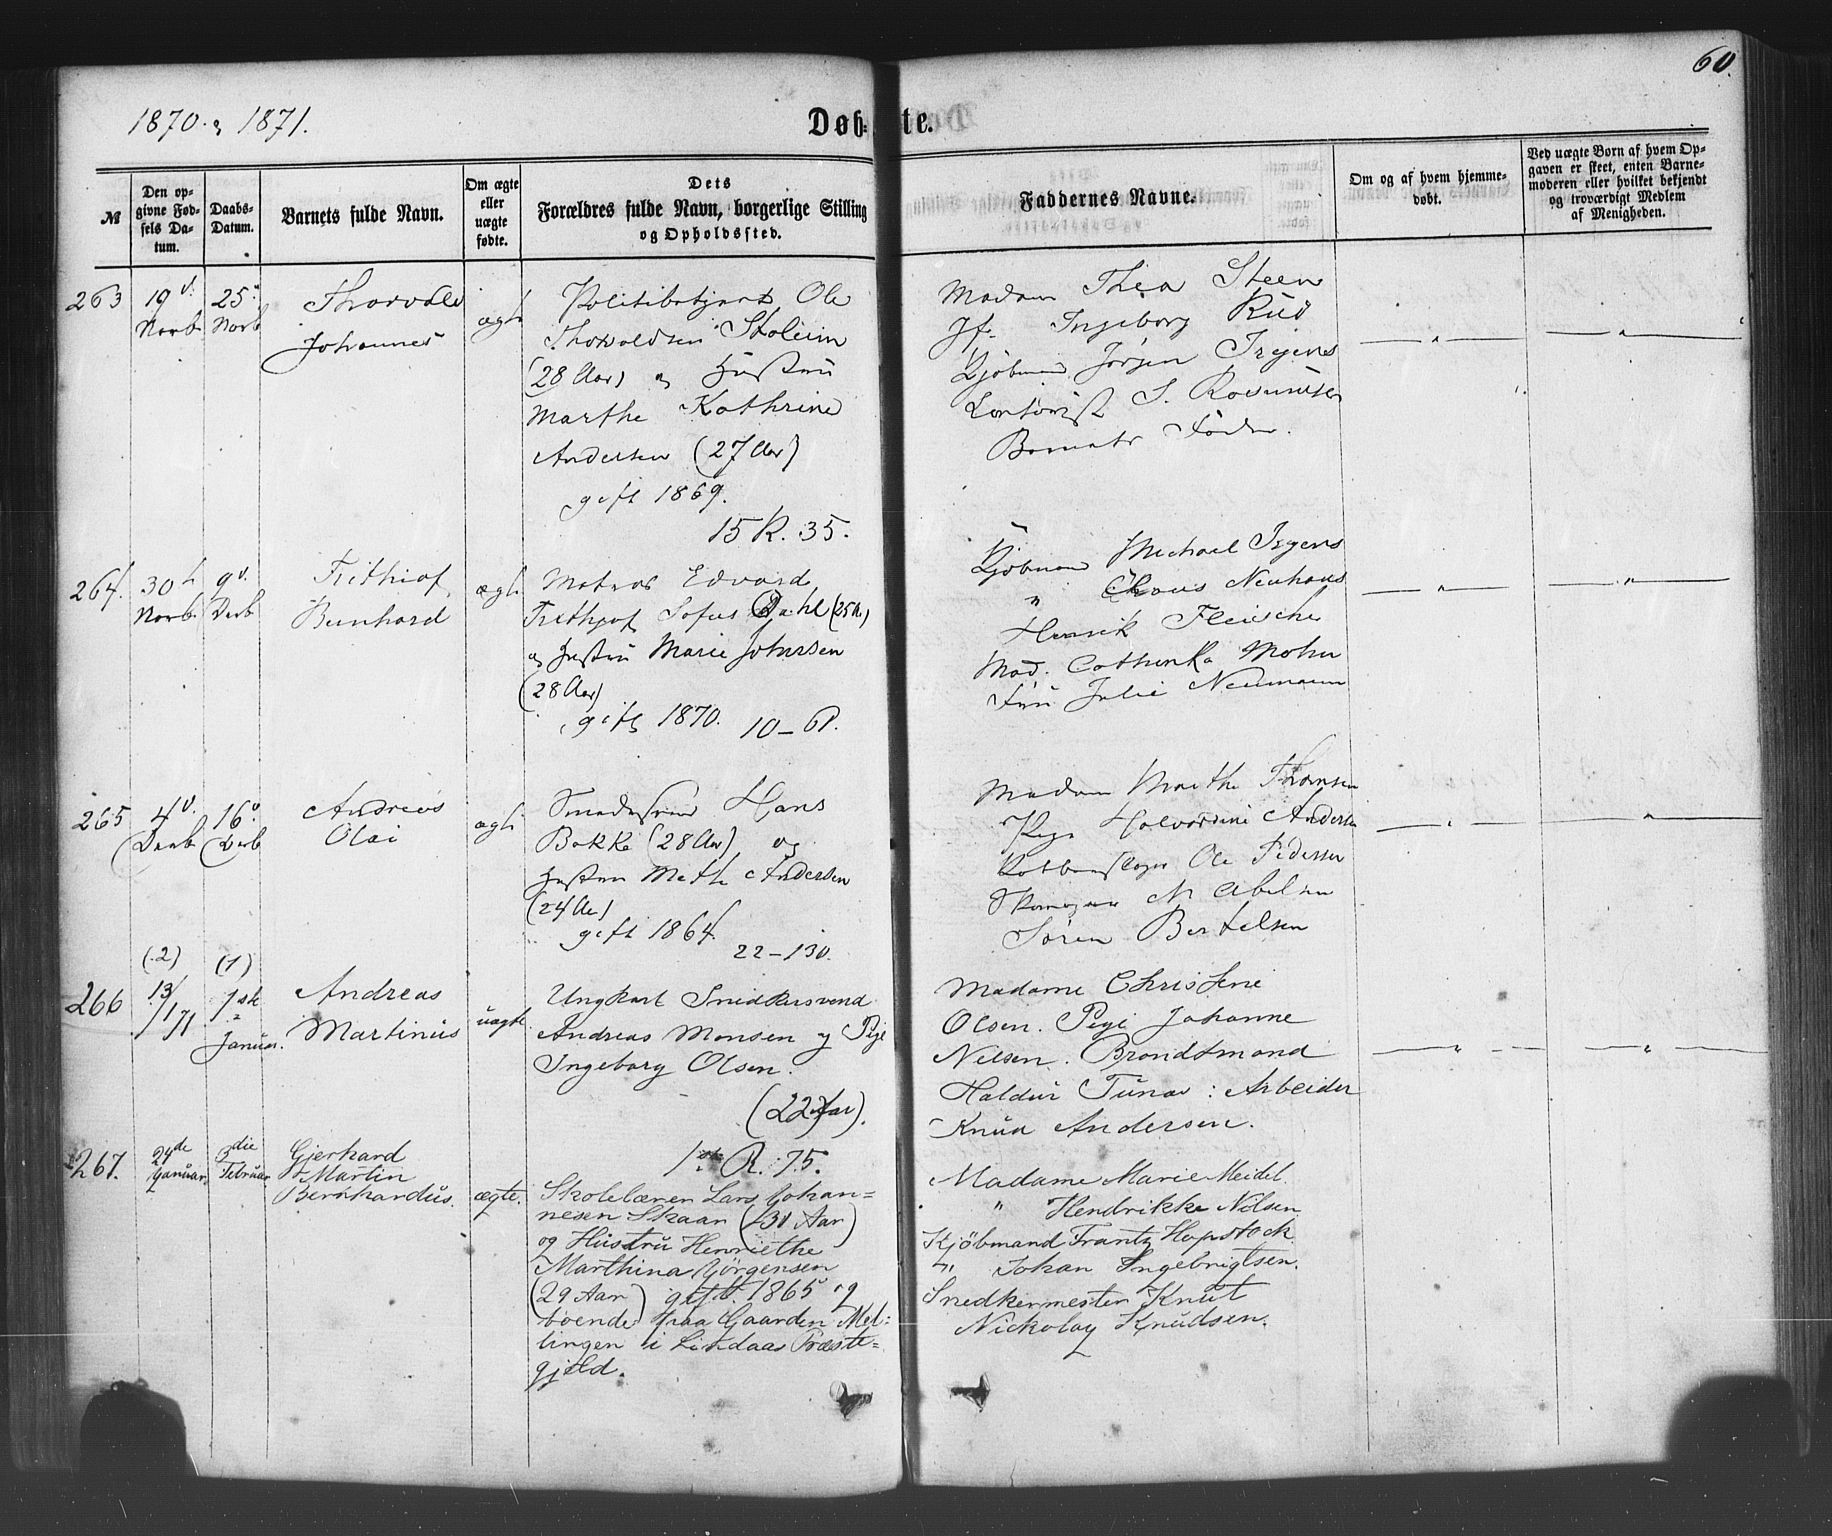 60.
1870 & 1871.
Døb-te.
№
Den opgivne Fødsels Datum.
Daabs-Datum.
Barnets fulde Navn.
Om ægte eller uægte fødte.
Dets Forældres fulde Navn, borgerlige Stilling og Opholdssted.
Faddernes Navne.
Om og af hvem hjemmedøbt.
Ved uægte Børn af hvem Opgaven er skeet, enten Barnemoderen eller hvilket bekjendt og troværdigt Medlem af Menigheden.
263
19
Novb
25
Novb
Thorvald
Johannes
ægte
Politibetjent Ole
Stoleim
(28 Aar) og Hustru
Marthe Kathrine
Andersen (27 Aar)
gift 1869.
15 R. 35.
Madam Thea Steen
Jf. Ingeborg Rud
Kjøbmand Jørgen Irgens
S. Rasmussen
Barnets Fader.
264.
30
Novb
9
Decb
Frithiof
Bernhard
ægte
Matros Edvard
Frithjof Sofus Dahl (25 A)
og Hustru Marie Johnsen
(28 Aar)
gift 1870. 10 – 61.
Kjøbmand Michael Irgens
" Claus Neuhaus
Henrik Fleischer
Mad. Cathinka Mohn
Fru Julie Neumann
265
4
Decb
16
Decb
Andreas
Olai
ægte
Smedesvend Hans
Bakke (28 Aar) og
Hustru Mette Andersen
(24 Aar)
gift 1864
22 – 130.
Madam Marthe Thomsen
Pige Halvardine Andersen
Ole Pedersen
N Abelsen
Søren Bertelsen
(2)
(1)
266
13/1 71
1ste
Januar.
Andreas
Martinus
uægte
Ungkarl Snedkersvend
Andreas Monsen og Pige
Ingeborg Olsen.
(22 Aar).
1ste R. 75.
Madame Christine
Olsen. Pige Johanne
Nelsen. Brandtmand
Haldur Tunas: Arbeider
Knud Andersen.
267.
24de
Januar.
3die
Februar
Gjerhard
Martin
Bernhardus.
ægte.
Skolelærer Lars Johan=
nesen Skaar (31 Aar)
og Hustru Henriethe
Marthina Jörgensen
(29 Aar) gift. 1865 og
boende paa Gaarden Mel=
lingen i Lindaas Præste=
gjeld.
Madame Marie Meidel.
" Hendrikke Nilsen
Kjöbmand Frantz Hopstock
" Johan Ingebrigtsen.
Snedkermester Knut
Nickolay Knudsen.